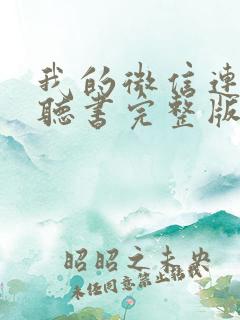 我的微信连
听书完整版
昭昭之未央
未经同意禁止转载